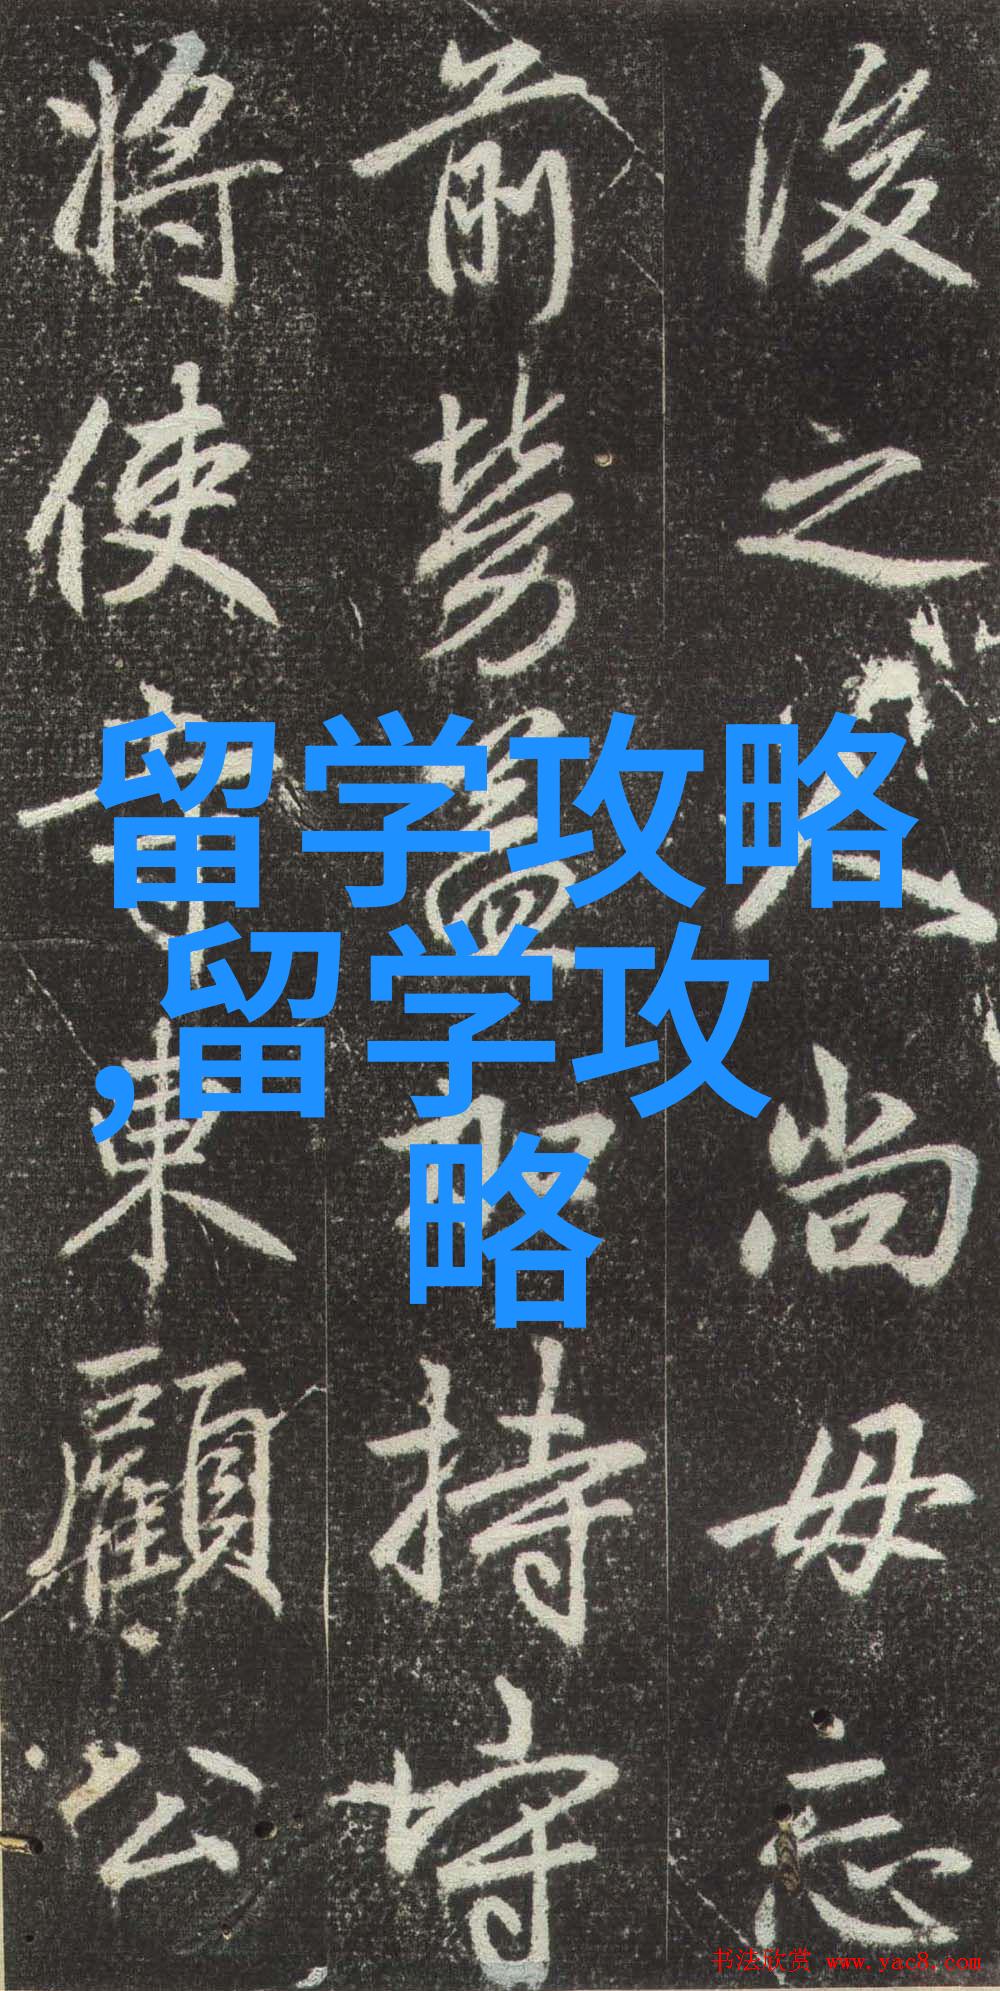 後之尚毋忘
前勞持守
將使東顧公
留学攻略
,留学攻
略
书法欣赏 www.yac8.com